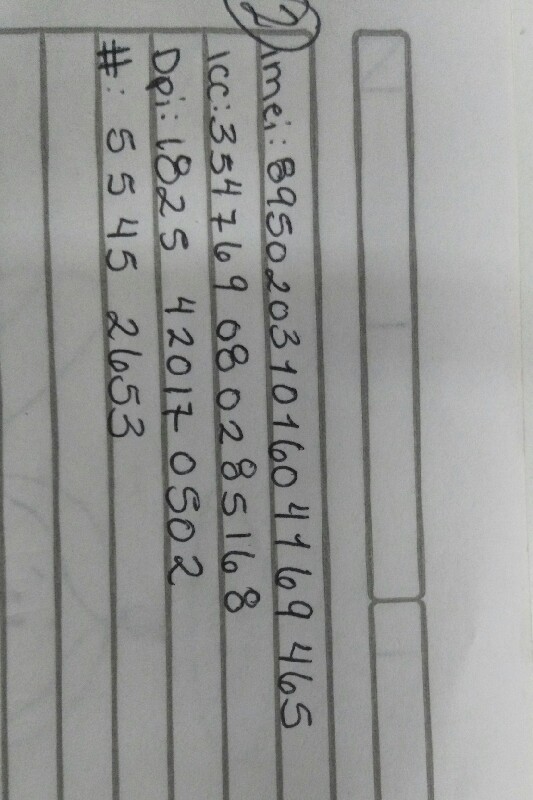 2)
imei: 8950203101604169465
icc: 354769080285168
Dpi: 1825 42017 0502
#: 5545 2653